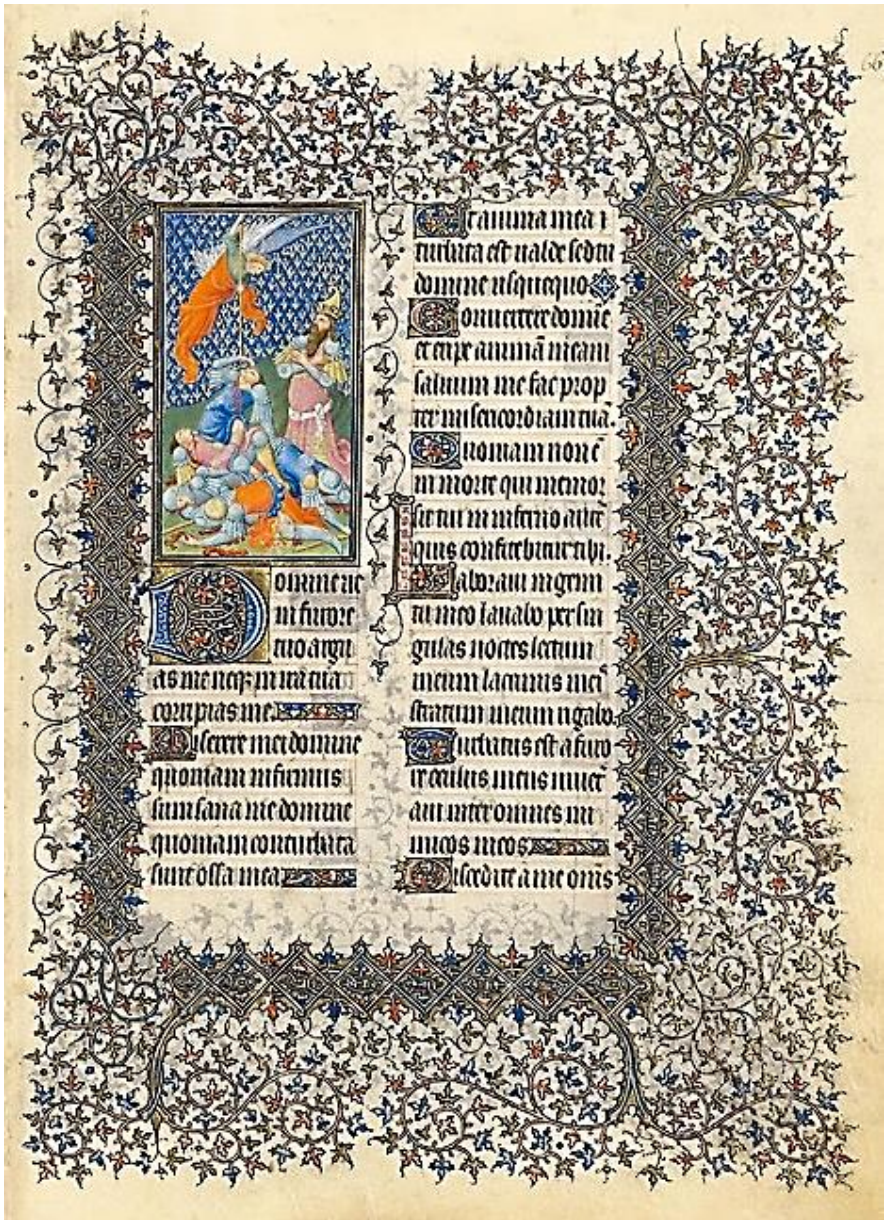 66
Domine ne
in furore
tuo argu
as me neqꝫ in ira tua
corripias me
Miserere mei domine
quoniam infirmus
sum sana me domine
quoniam conturbata
sunt ossa mea
Et anima mea
turbata est ualde sed tu
domine usquequo
Conuertere domie
et eripe animã meam
saluum me fac prop
ter misericordiam tuã.
Quoniam non ẽ
in morte qui memor
sit tui in inferno autẽ
quis confitebitur tibi.
Laboraui in gemi
tu meo lauabo per sin
gulas noctes lectum
meum lacrimis meis
stratum meum rigabo.
Turbatus est a furo
re oculus meus inuet
aui inter omnes ini
micos meos
Discedite a me omẽs